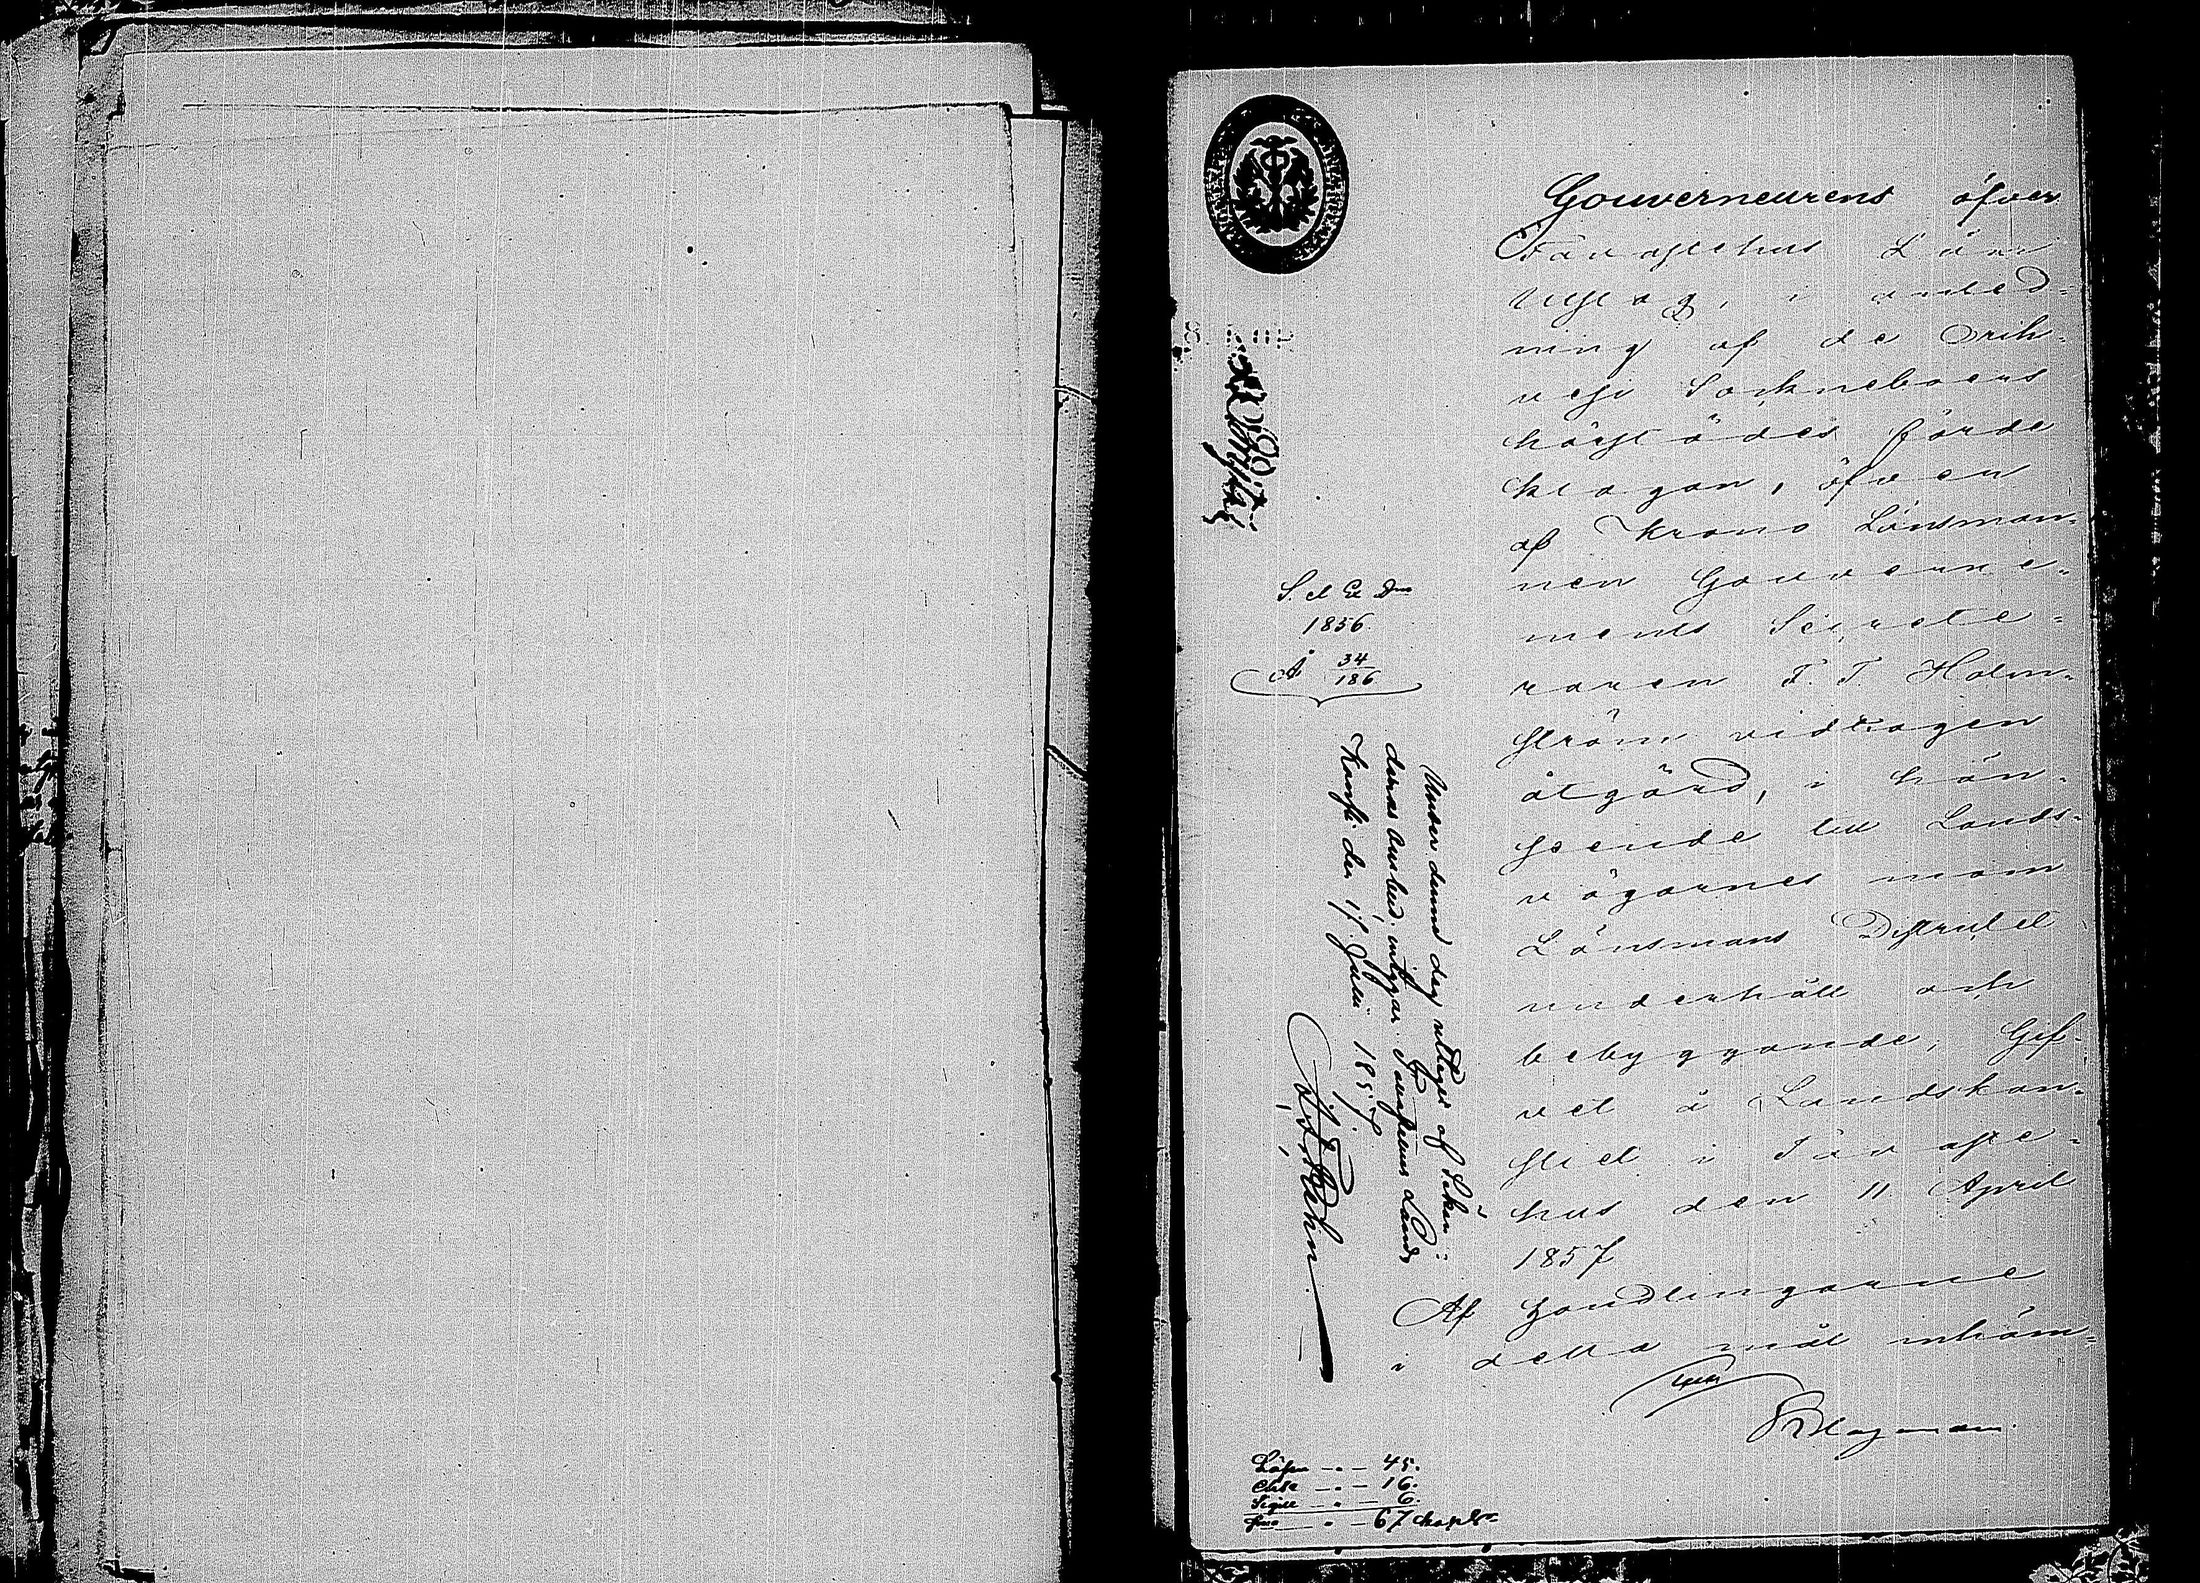 Gouverneurens öfver
Tavastehus Län
Utslag, i anled-
ning af de Orih-
vesi Sockneboers
härstädes förde
klagan, öfver
af Krono Länsman-
nen Gouverne-
ments Secrete-
raren F. T. Holm-
ström vidtagen
åtgärd, i hän-
seende till Lands-
vägarnes inom
Länsmans Distriktet
underhåll och
bebyggande; Gif-
vet å Landskan-
sliet i Tavaste-
hus den 11 April
1857
Af Handlingarne
i detta mål inhäm-
S. et Ex. Dm
1856.
A 34/186
Under denna dag uttaget af Sökan-
Tavastehus Lands
Kansli den 17 Juli 1857.
Lösen - - - 45.
Chta - - - 16.
Sigill - - - 6.
Sma - - - 67 kop Sr